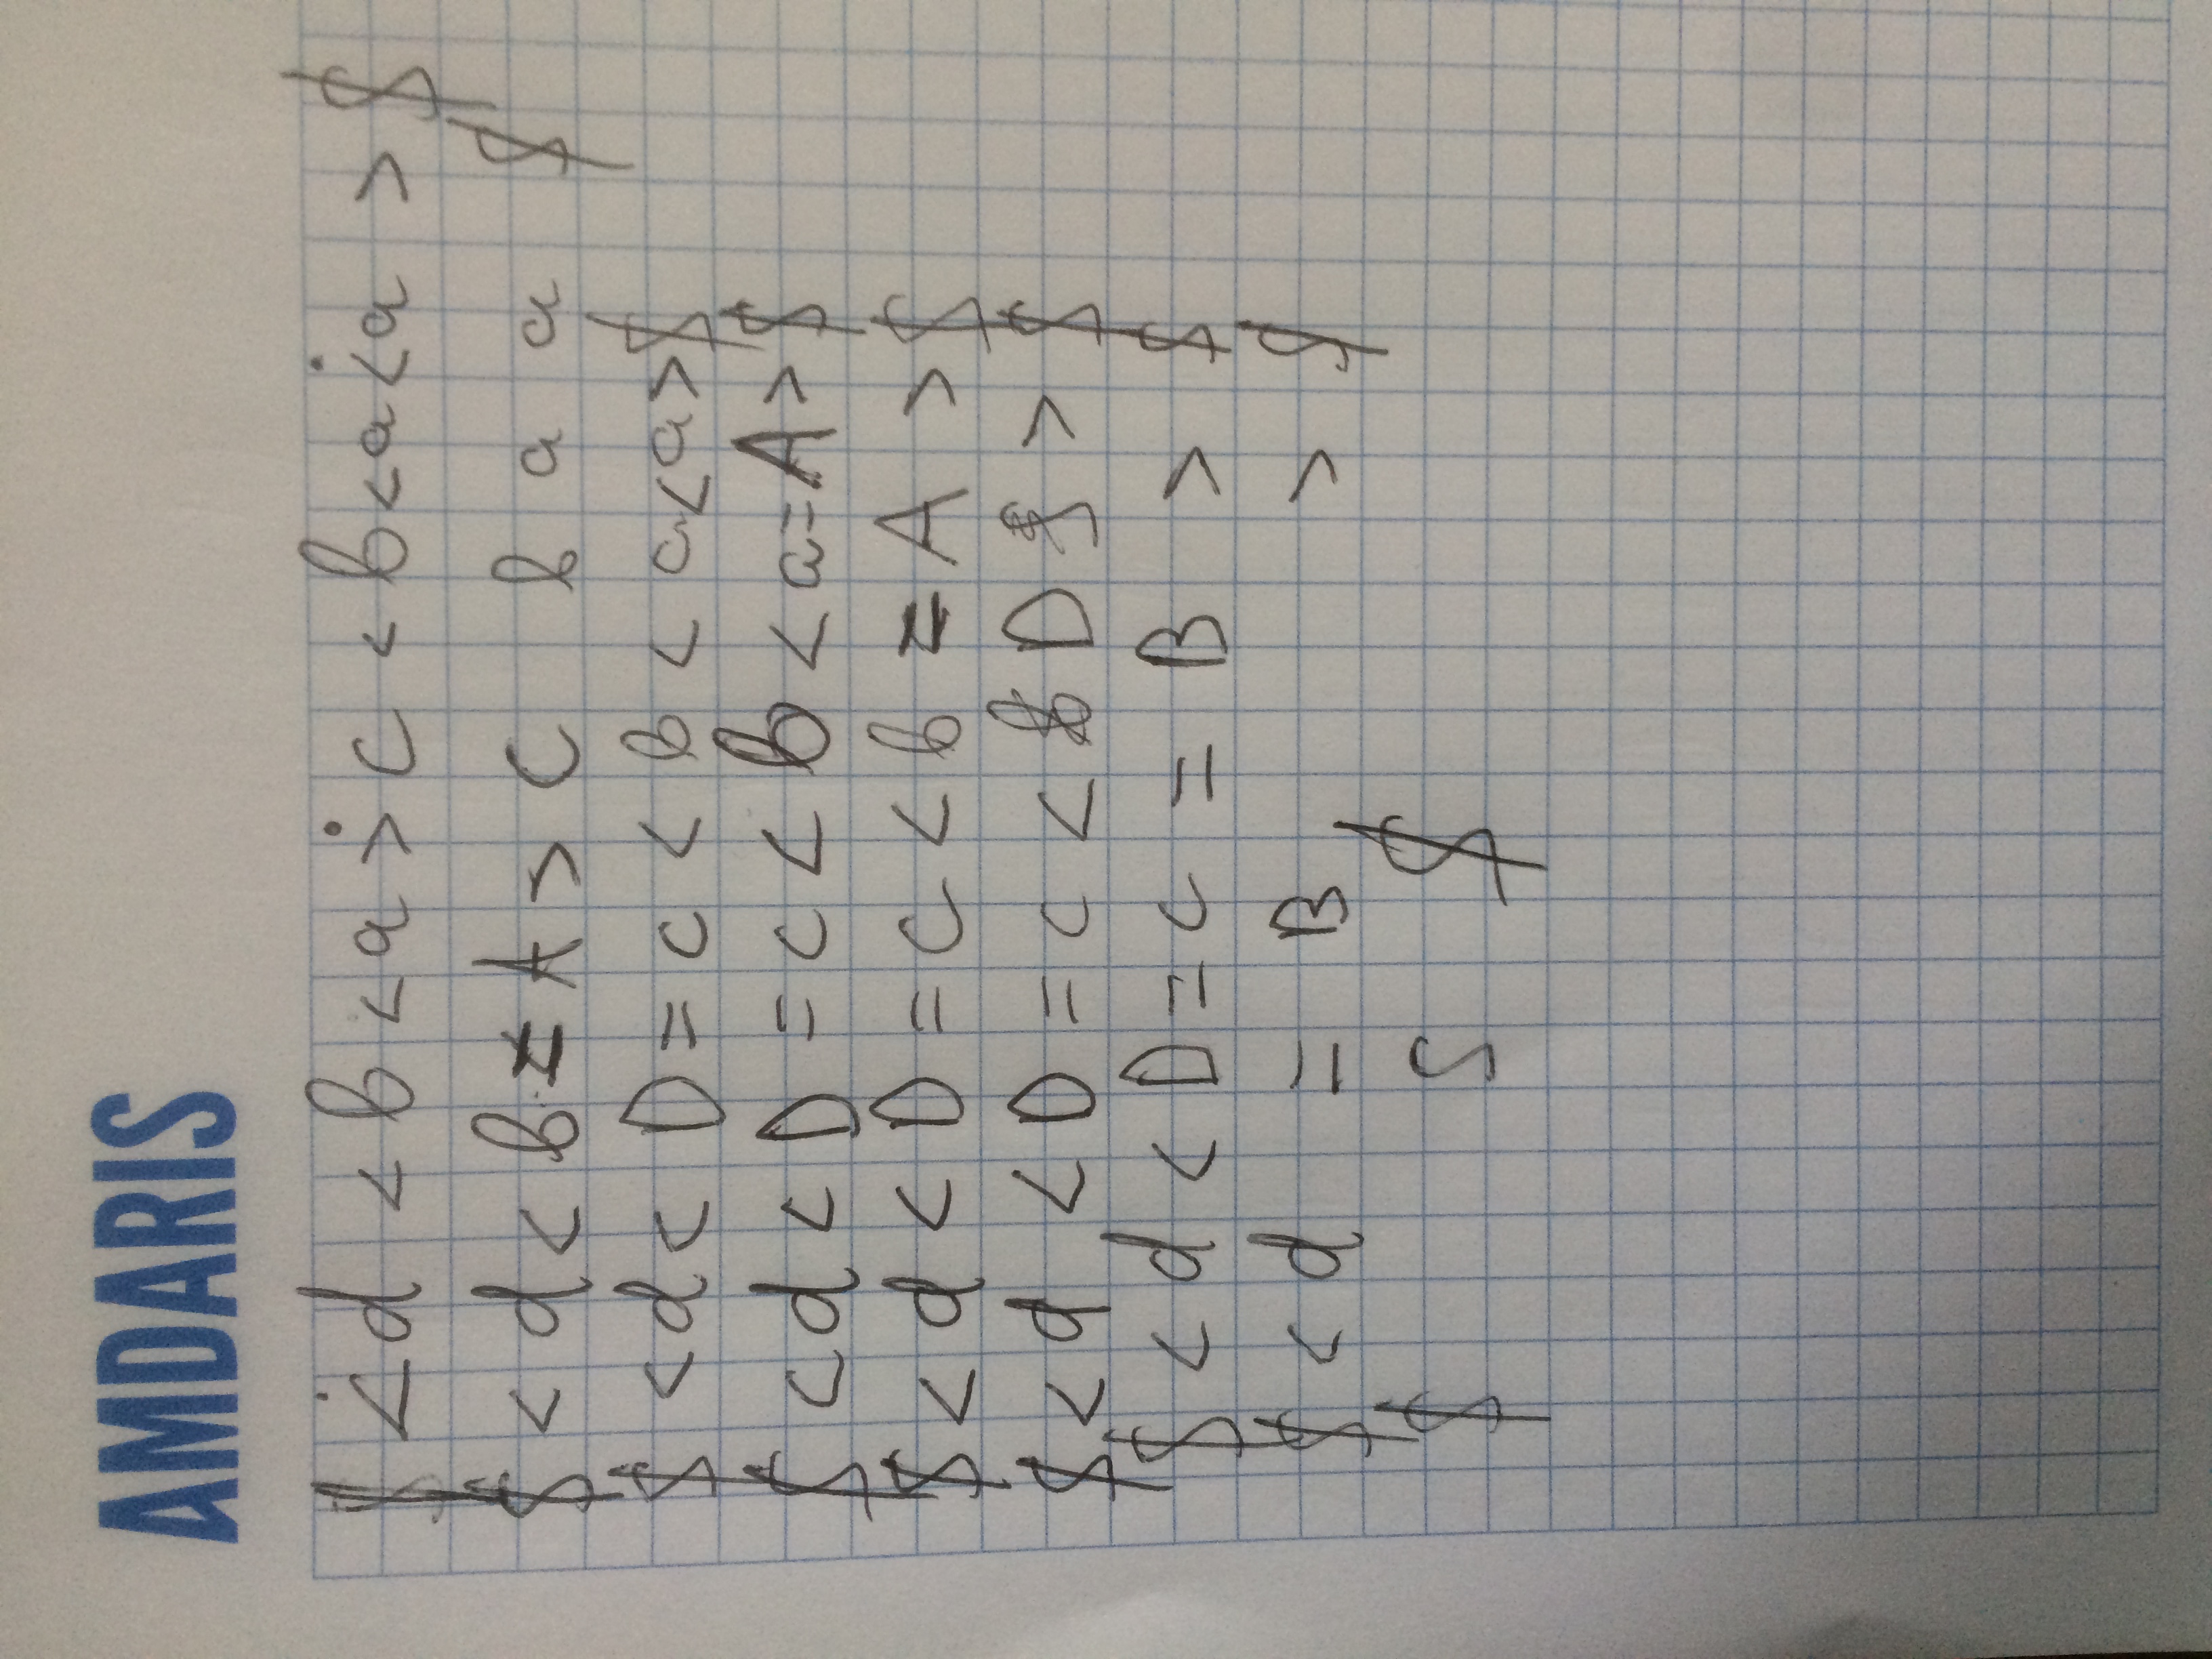 AMDARIS
$ <· d < b < a ·> c < b < a <· a > $
$ < d < b = A > c b a a $
$ < d < D = c < b < a < a > $
$ < d < D = c < b < a = A > $
$ < d < D = c < b = A > $
$ < d < D = c < D > $
$ < d < D = c = B > $
$ < d = B > $
$ S $